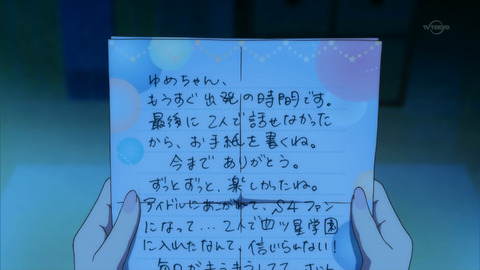 TV TOKYO
ゆめちゃん、
もうすぐ出発の時間です。
最後に2人で話せなかった
から、お手紙を書くね。
今までありがとう。
ずっとずっと、楽しかったね。
アイドルにあこがれて、S4ファン
になって…2人で四ツ星学園
に入れたなんて、信じられない!
毎日がきらきらしてて、ホント